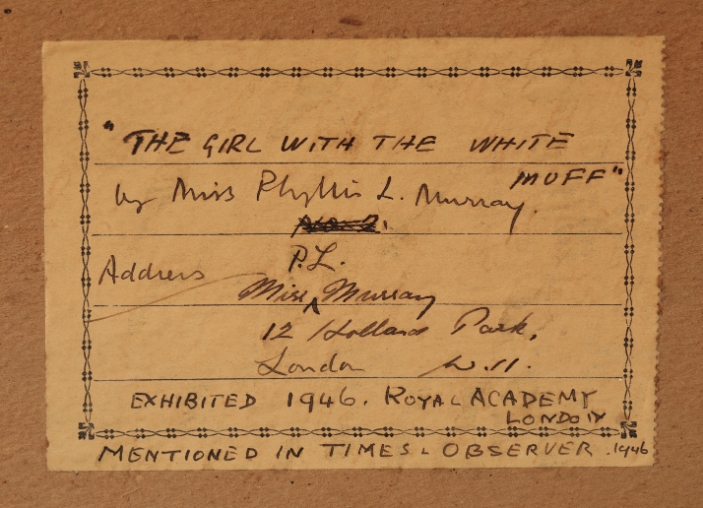 "THE GIRL WITH THE WHITE
MUFF"
by Miss Phyllis L. Murray.
Address P.L.
Miss ^ Murray
12 Holland Park,
London W.11.
EXHIBITED 1946. ROYAL ACADEMY
LONDON
MENTIONED IN TIMES & OBSERVER. 1946